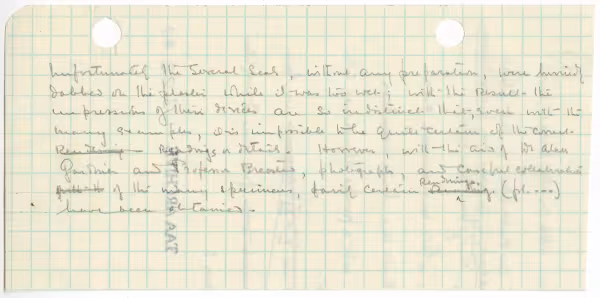 Unfortunately the several seals, without any preparation, were hurriedly
dabbed on the plaster while it was too wet; with the result the
impressions of their devices are so indistinct that, even with the
many examples, it is impossible to be quite certain of the correct
Readings or details. However, with the aid of Dr Alan
Gardiner and Professor Breasted, photographs, and careful collaboration
of the many specimens, fairly certain Readings (pl....)
have been obtained.